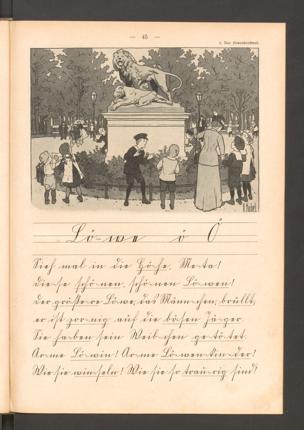 — 45 —
Lö-we ö Ö
Sieh mal in die Hö-he, Me-ta!
die-se schö-nen, schö-nen Lö-wen!
der größe-re Lö-we, das Männ-chen, brüllt,
er ist zor-nig auf die bösen Jä-ger.
Sie ha-ben sein Weib-chen ge-tö-tet.
Ar-me Lö-win! Ar-me Lö-wen-kin-der!
Wie sie win-seln! Wie sie so trau-rig sind!